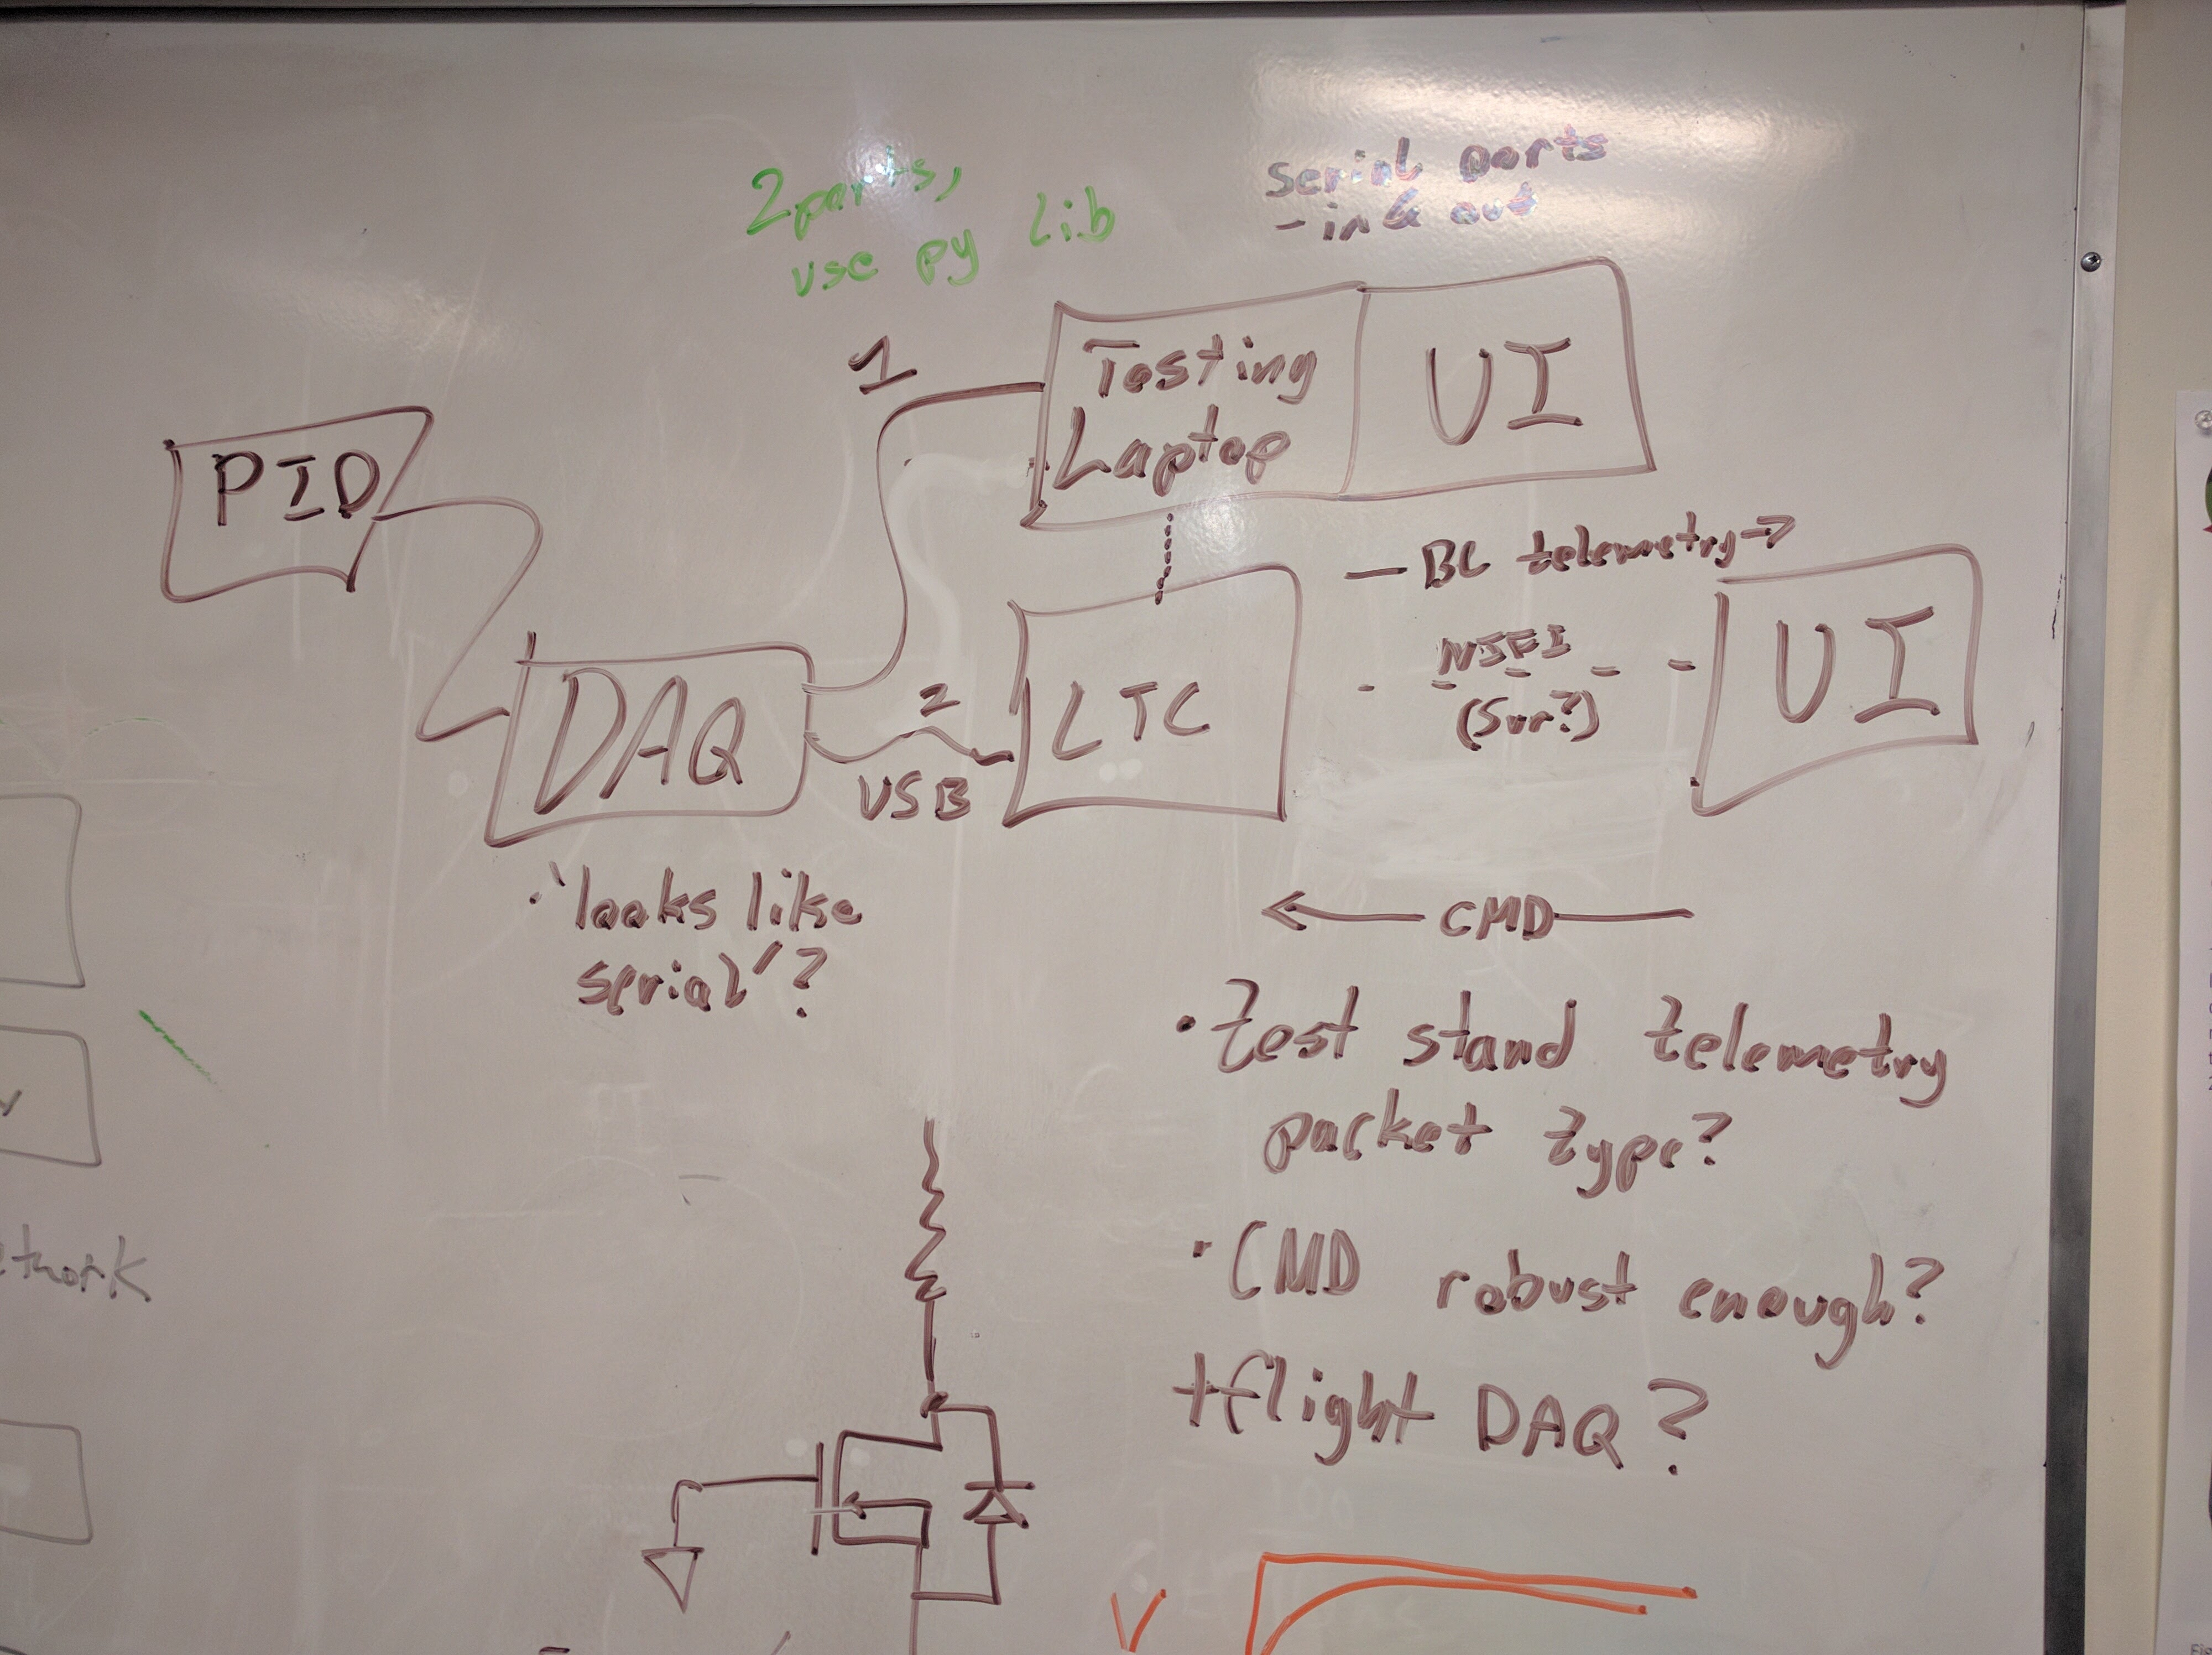 2 ports,
use py lib
serial ports
- in & out
1
Testing
Laptop
UI
PID
- BC telemetry →
UI
(Svr?)
DAQ
2
USB
LTC
"looks like
serial"?
← CMD
• test stand telemetry
packet type?
• CMD robust enough?
+flight DAQ?
V